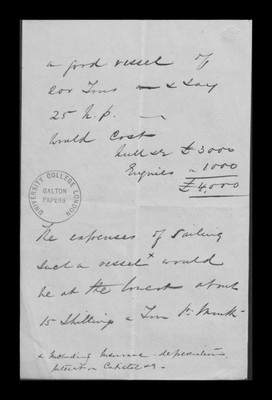 a good vessel of
Tons & say
25 h.p.
would cost
hull &c £3000
Engines " 1000
£4,000
UNIVERSITY COLLEGE LONDON
GALTON
PAPERS
The expenses of sailing
such a vessel x would
be at the lowest about
15 shillings a Ton pr. Month
x including Insurance, depreciation,
interest on Capital &c -